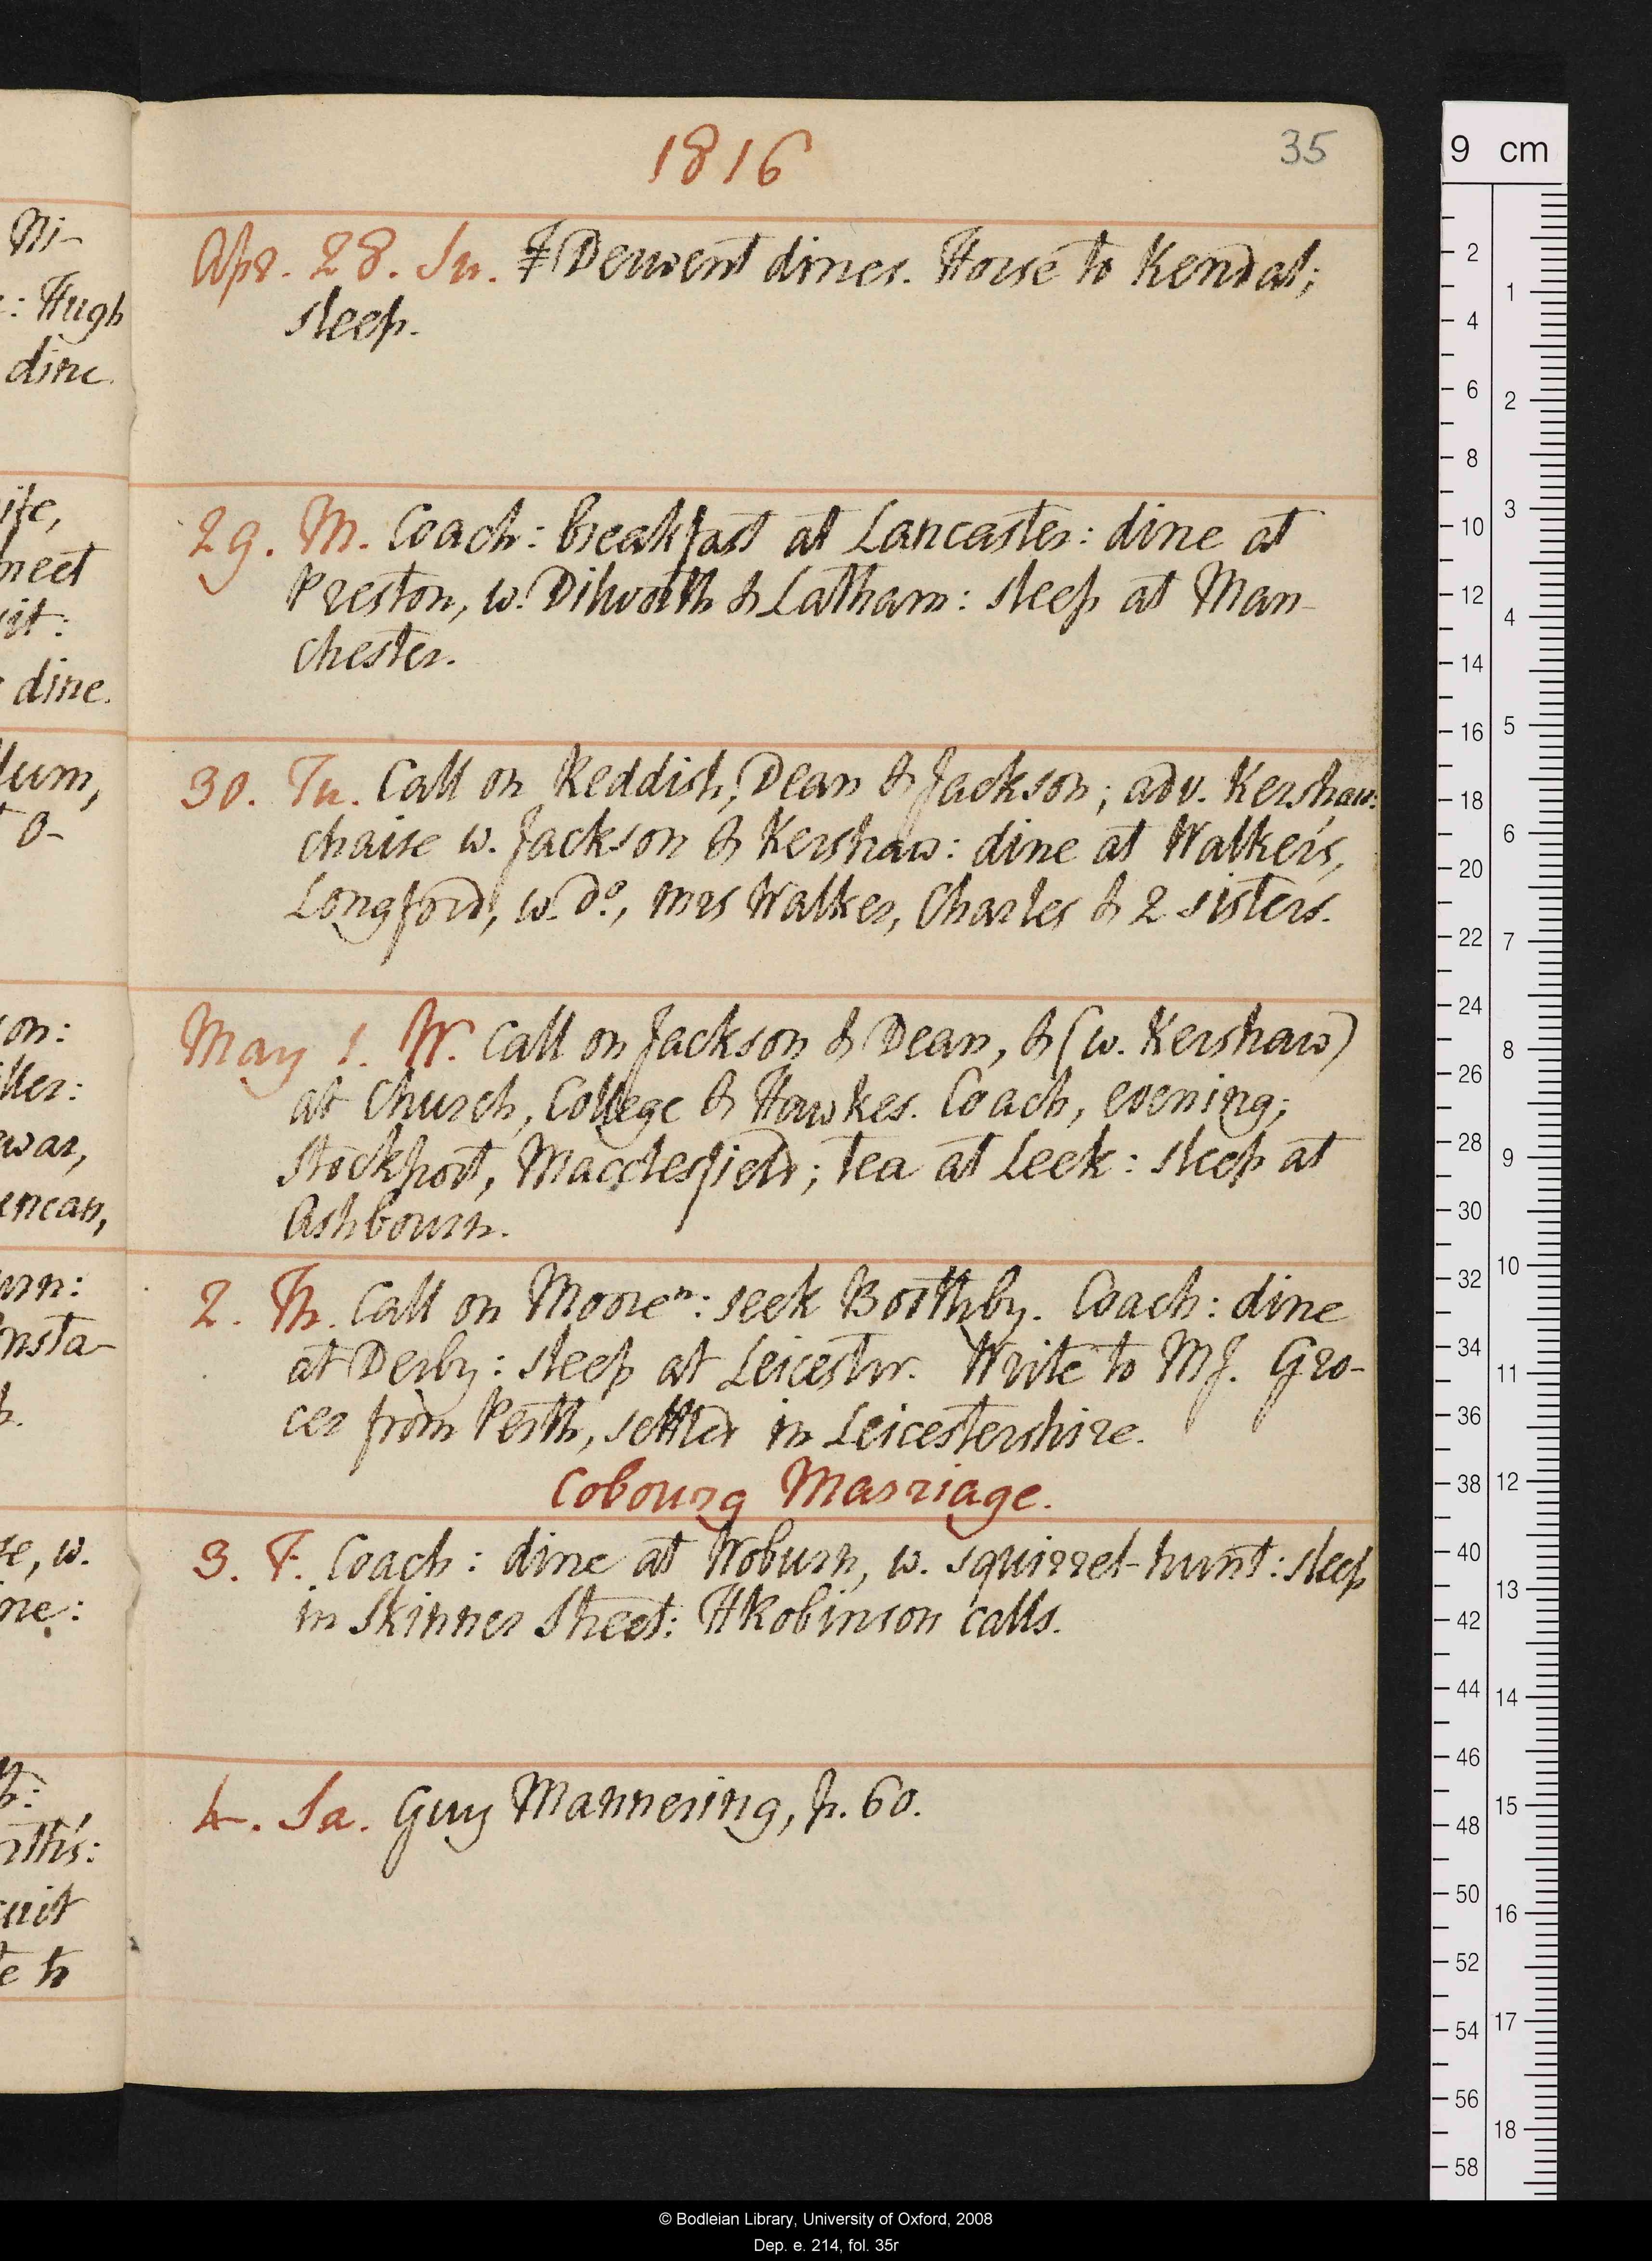 1816
35
Apr. 28. Su. Derwent dines. Horse to Kendal;
sleep.
29. M. Coach: breakfast at Lancaster: dine at
Preston, w. Dilworth & Latham: sleep at Man-
chester.
30. Tu. Call on Reddish, Dean & Jackson; adv. Kershaw:
chaise w. Jackson & Kershaw: dine at Walker's,
Longford, w. do, Mrs Walker, Charles & 2 sisters.
May 1. W. Call on Jackson & Dean, & (w. Kershaw)
at Church, College & Hawkes. Coach, evening;
Stockport, Macclesfield; tea at Leek: sleep at
Ashbourn.
2. Th. Call on Moore n: seek Boothby. Coach: dine
at Derby: sleep at Leicester. Write to MJ. Gro-
cer from Perth, settled in Leicestershire.
Cobourg Marriage.
3. F. Coach: dine at Woburn, w. squirrel-hunt: sleep
in Skinner Street: HRobinson calls.
4. Sa. Guy Mannering, p. 60.
Ni-
: Hugh
dine.
ife,
meet
dine.
on:
war,
uncan,
nsta-
e, w.
9 cm
2
4
6
8
10
12
14
16
18
20
22
24
26
28
30
32
34
36
38
40
42
44
46
48
50
52
54
56
58
1
2
3
4
5
6
7
8
9
10
11
12
13
14
15
16
17
18
© Bodleian Library, University of Oxford, 2008
Dep. e. 214, fol. 35r